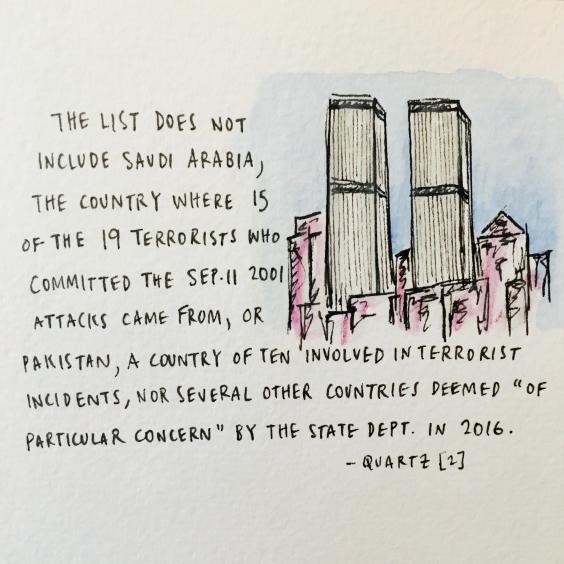 THE LIST DOES NOT
INCLUDE SAUDI ARABIA,
THE COUNTRY WHERE 15
OF THE 19 TERRORISTS WHO
COMMITTED THE SEP.11 2001
ATTACKS CAME FROM, OR
PAKISTAN, A COUNTRY OF TEN INVOLVED IN TERRORIST
INCIDENTS, NOR SEVERAL OTHER COUNTRIES DEEMED "OF
PARTICULAR CONCERN" BY THE STATE DEPT. IN 2016.
- QUARTZ [2]